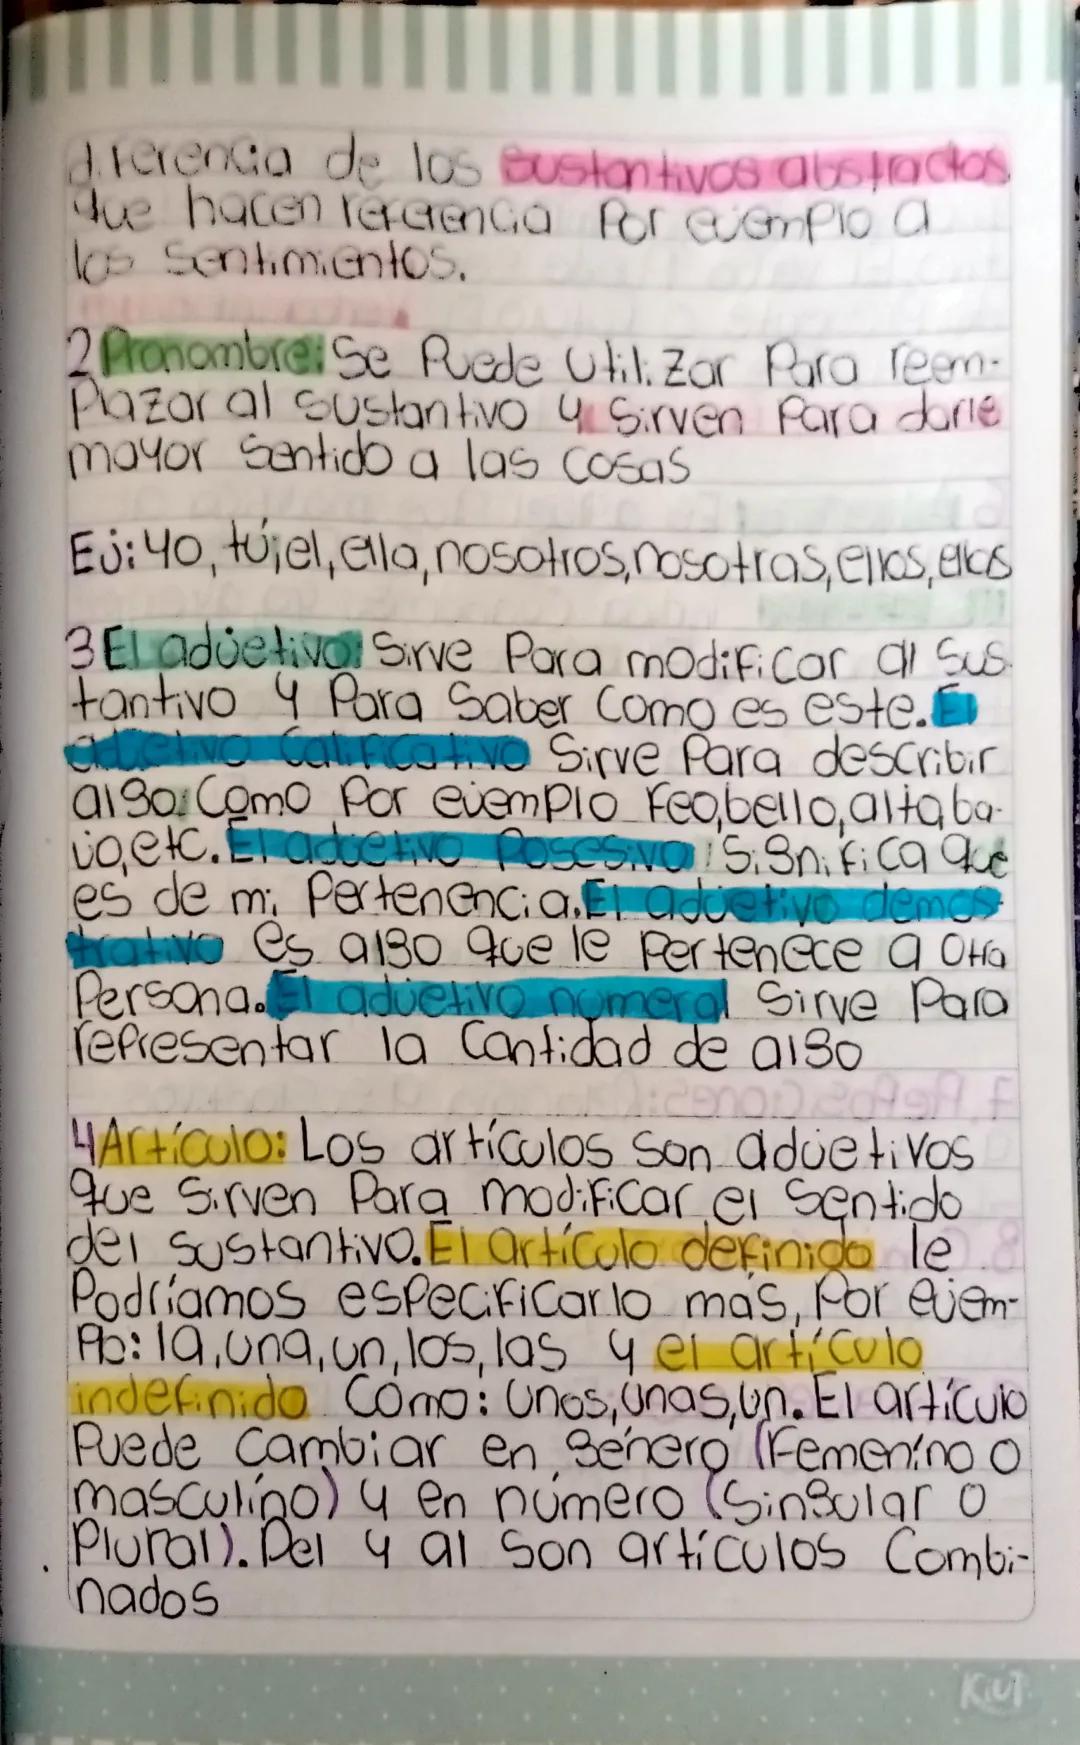 diferencia de los sustantivos abstractos
que hacen referencia Por ejemplo a
los sentimientos.
2 Pronombre: Se Puede Utilizar Para reem-
Plazar al sustantivo y sirven Para darle
mayor sentido a las cosas
Ej: yo, tú, el, ella, nosotros, nosotras, ellos, ellas
3 El adjetivo: Sirve Para modificar al sus-
tantivo y Para Saber Como es este. El
adjetivo Calificativo Sirve Para describir
algo: Como Por ejemplo Feo, bello, alta, ba-
ja, etc. El adjetivo Posesivo: Significa que
es de mi Pertenencia. El adjetivo demos-
trativo es algo que le Pertenece a otra
Persona. El adjetivo numeral Sirve Para
representar la Cantidad de algo
4 Artículo: Los artículos son adjetivos
que Sirven Para modificar el Sentido
del sustantivo. El artículo definido le
Podríamos especificarlo mas, Por ejem-
Plo: la, una, un, los, las y el artículo
indefinido Como: Unos, unas, un. El artículo
Puede Cambiar en género (Femenino o
masculino) y en número (Singular o
Plural). Del y al Son artículos Combi-
nados
Kiut